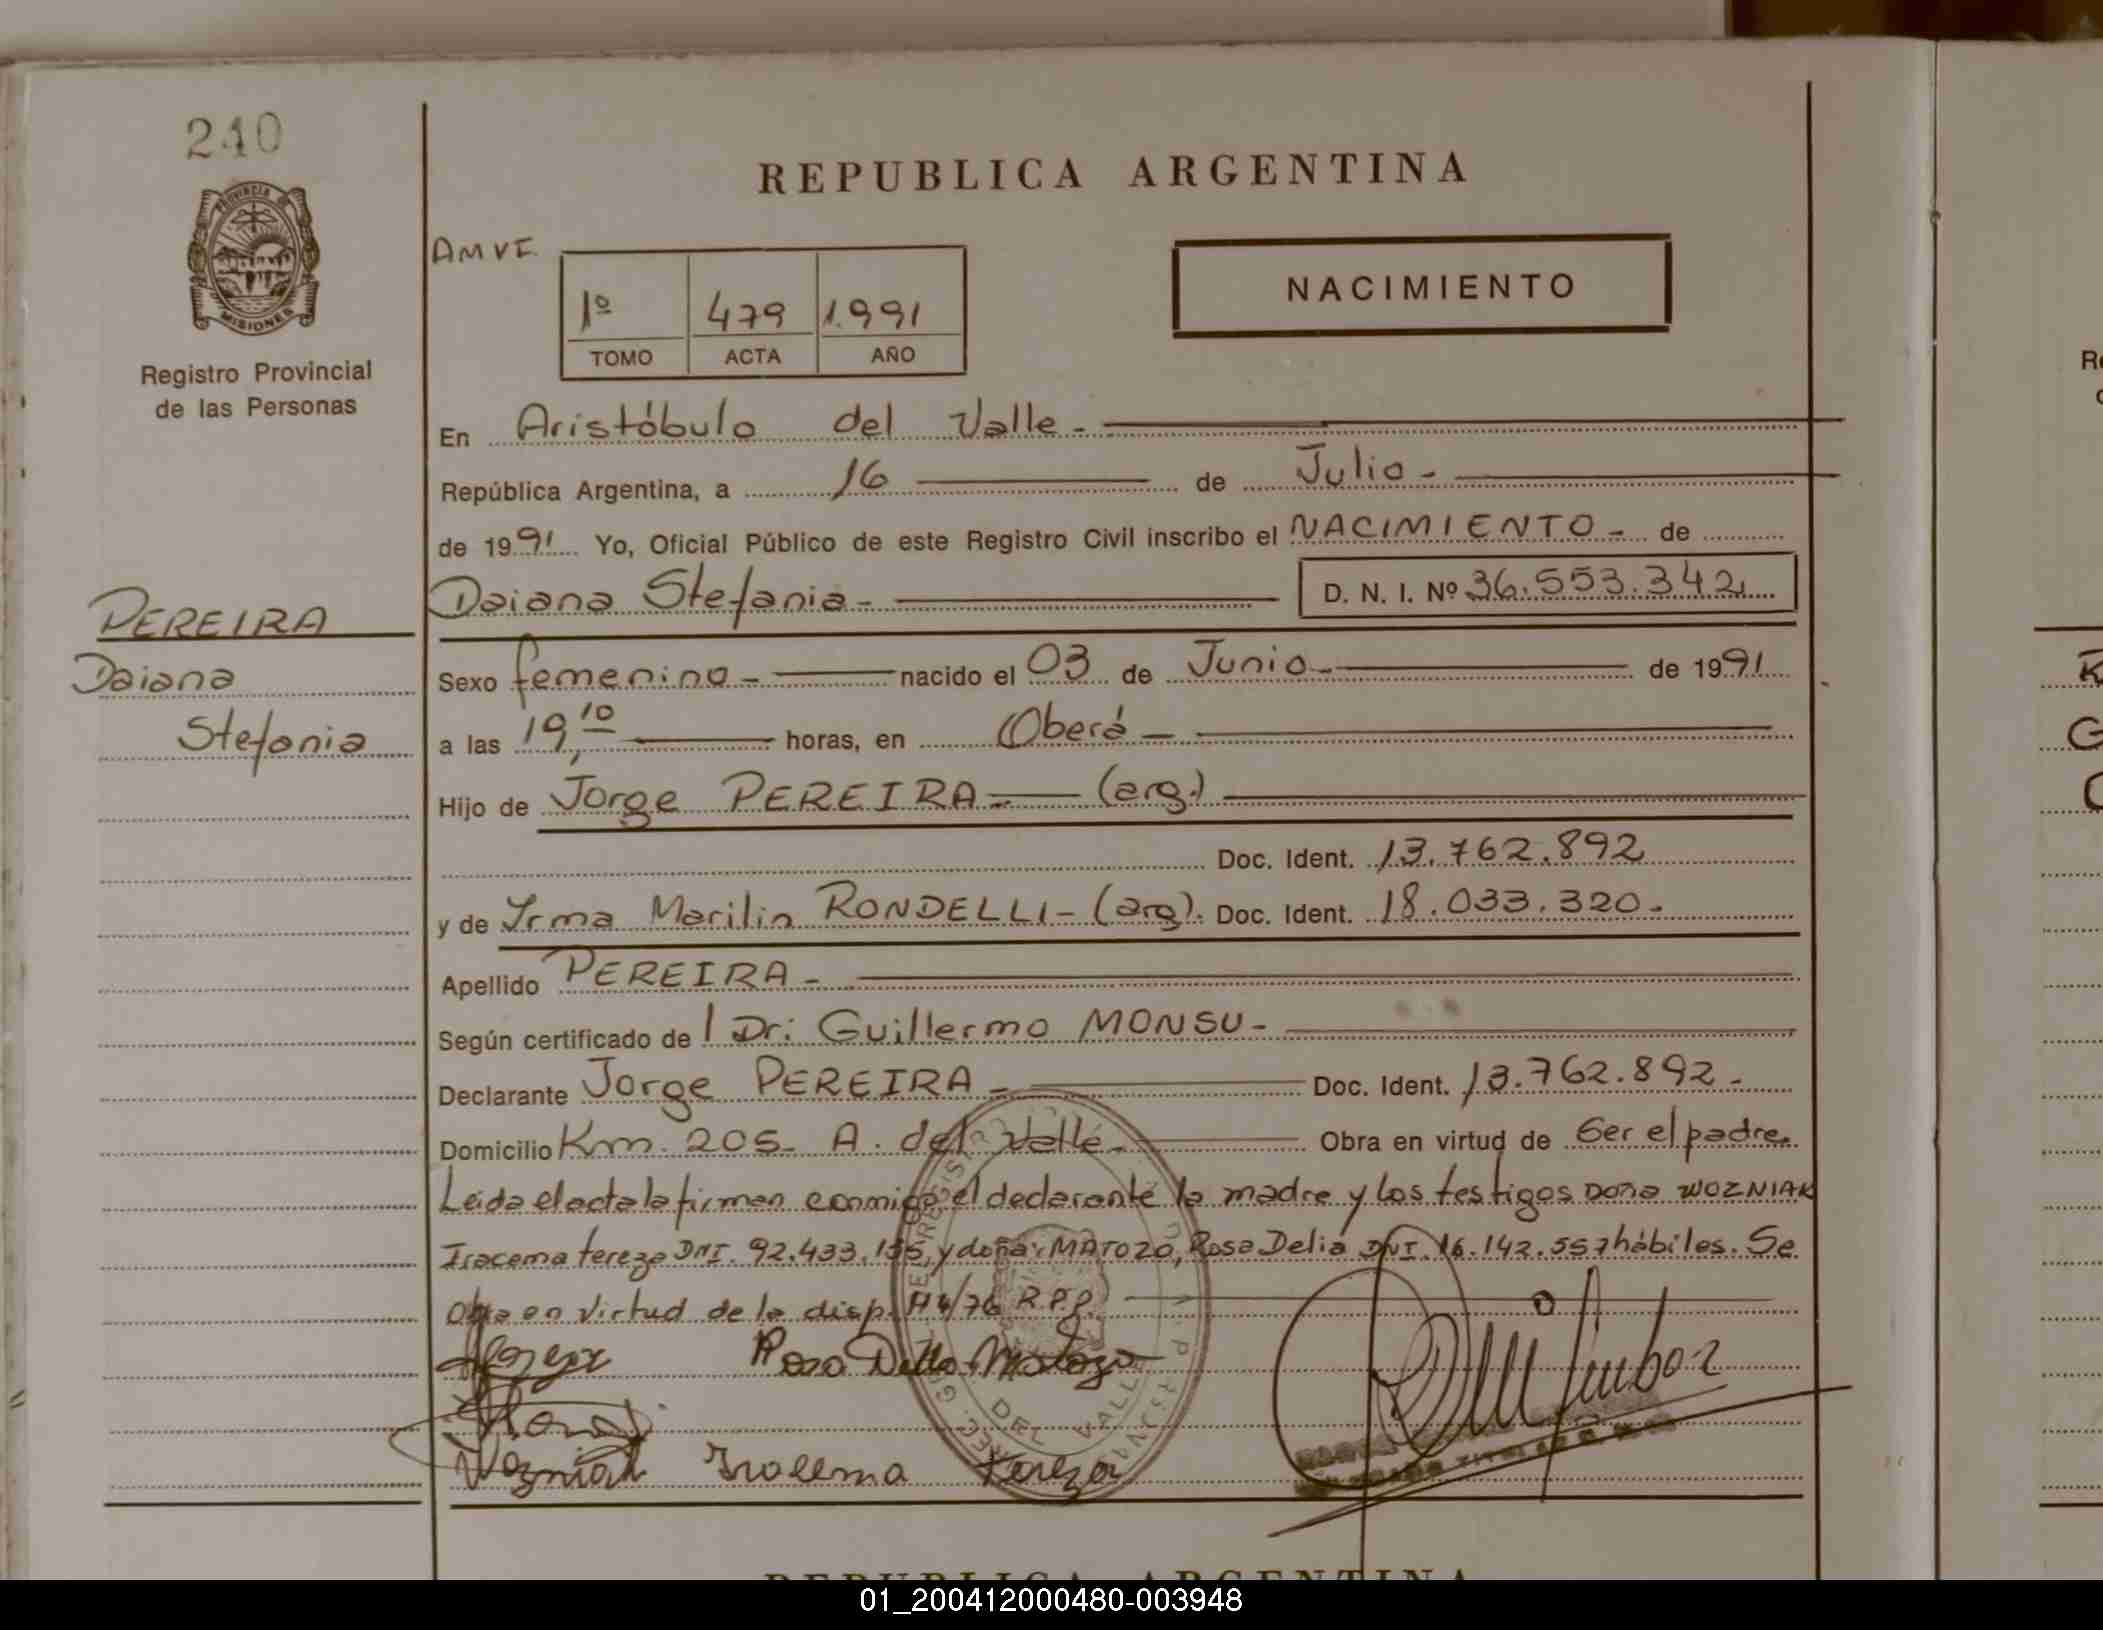 240
REPUBLICA ARGENTINA
PROVINCIA DE
MISIONES
Registro Provincial
de las Personas
AMVE
1º 479 1.991
TOMO ACTA AÑO
NACIMIENTO
En Aristóbulo del Valle.-
República Argentina, a 16 de Julio-
de 1991 Yo, Oficial Público de este Registro Civil inscribo el NACIMIENTO- de
PEREIRA
Daiana
Stefania
Daiana Stefania- D. N. I. Nº 36.553.342
Sexo femenino- nacido el 03 de Junio- de 1991
a las 19,10 horas, en Oberá-
Hijo de Jorge PEREIRA- (arg.)
Doc. Ident. 13.762.892
y de Yrma Marilin RONDELLI- (arg). Doc. Ident. 18.033.320.-
Apellido PEREIRA-
Según certificado de l Dr: Guillermo MONSU-
Declarante Jorge PEREIRA- Doc. Ident. 13.762.892-
Domicilio Km. 205- A. del Valle- Obra en virtud de Ser el padre.
Leida el acta la firman conmigo el declarante la madre y los testigos Doña WOZNIAK
Iracema tereza DNI. 92.433.135, y doña: MATOZO, Rosa Delia DNI. 16.142.557 hábiles. Se
Obra en virtud de la disp. R.P.P.
Rosa Delia Matozo
Wozniak Iracema Tereza
DEL VALLE
REPUBLICA ARGENTINA
01_200412000480-003948